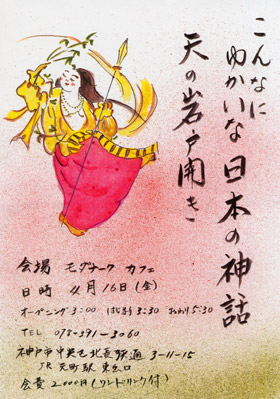 こんなに
ゆかいな日本の神話
天の岩戸開き
会場 モダナーク カフェ
日時 4月16日(金)
オープニング3:00 はじまり3:30 おわり5:30
TEL 078-391-3060
神戸市中央区北長狭通 3-11-15
JR.元町駅 東出口
会費 2000円(ワンドリンク付)